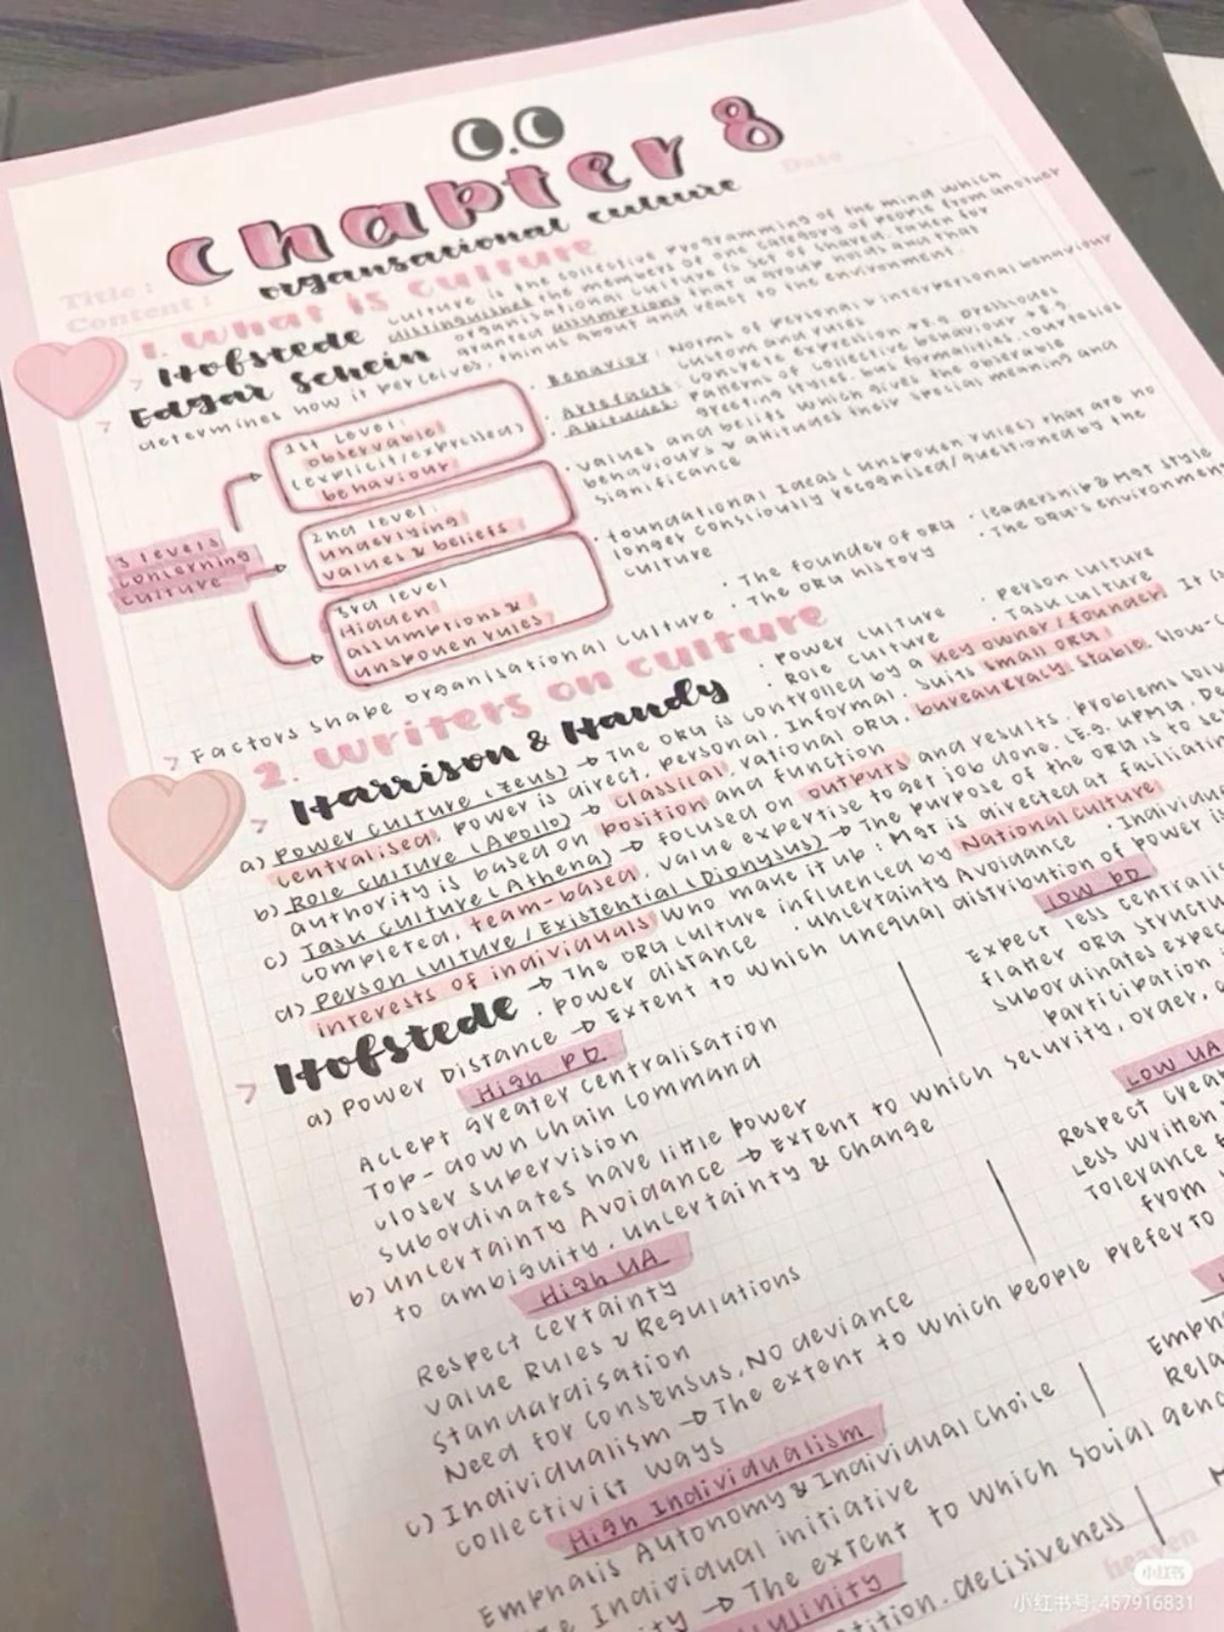 Chapter 8
organsational culture
Date
Title :
Content :
1. What is culture
Hofstede culture is the collective programming of the mind which
distinguished the members of one category of people from another
Edgar Schein organisational culture is set of shared, taken for
granted assumptions that a group holds and that
determines how it perceives, thinks about and react to the environment.
3 levels
concerning
culture
1st Level:
observable
(explicit/expressed)
behaviour
· Behavior: Norms of personal & interpersonal behaviour
custom and rules
· Artefacts: concrete expression → E.g. Dresscodes
· Attitudes: patterns of collective behaviour → E.g.
greeting styles, bus formalities, courtesies
2nd level:
underlying
values & beliefs
· values and beliefs which gives the observable
behaviours & attitudes their special meaning and
significance
3rd level
Hidden
assumptions &
unspoken rules
· foundational ideas (unspoken rules) that are no
longer consciously recognised/questioned by the
culture
> Factors shape organisational culture · The founder of org · leadership & Mgt style
· The org history · The org's environment
2. Writers on culture
> Harrison & Handy · power culture · person culture
· Role culture · Task culture
a) Power culture (Zeus) → The org is controlled by a key owner/founder. It is
centralised, power is direct, personal, Informal. Suits small org!
b) Role culture (Apollo) → classical, rational org, bureaucracy. stable, slow-c
authority is based on position and function
c) Task culture (Athena) → focused on outputs and results. Problems solv
completed, team-based, value expertise to get job done. (E.g. KPMG, De
d) Person culture / Existential (Dionysus) → The purpose of the org is to se
interests of individuals who make it up : Mgt is directed at facilitatin
> Hofstede → The org culture influenced by National culture
· power distance · uncertainty Avoidance · Individua
a) Power Distance → Extent to which unequal distribution of power is
High PD
Accept greater centralisation
Top-down chain command
closer supervision
subordinates have little power
Low PD
Expect less centrali
flatter org structu
subordinates expec
participation
b) uncertainty Avoidance → Extent to which security, order,
to ambiguity, uncertainty & change
High UA
Respect certainty
value Rules & Regulations
standardisation
Need for consensus, No deviance
Low UA
Respect crea
less written
Tolerance f
from
c) Individualism → The extent to which people prefer to
collectivist ways
High Individualism
Emphasis Autonomy & Individual choice
Individual initiative
Emph
Rela
ity → The extent to which social gend
ulinity
tition, decisiveness
heaven
小红书
小红书号:457916831